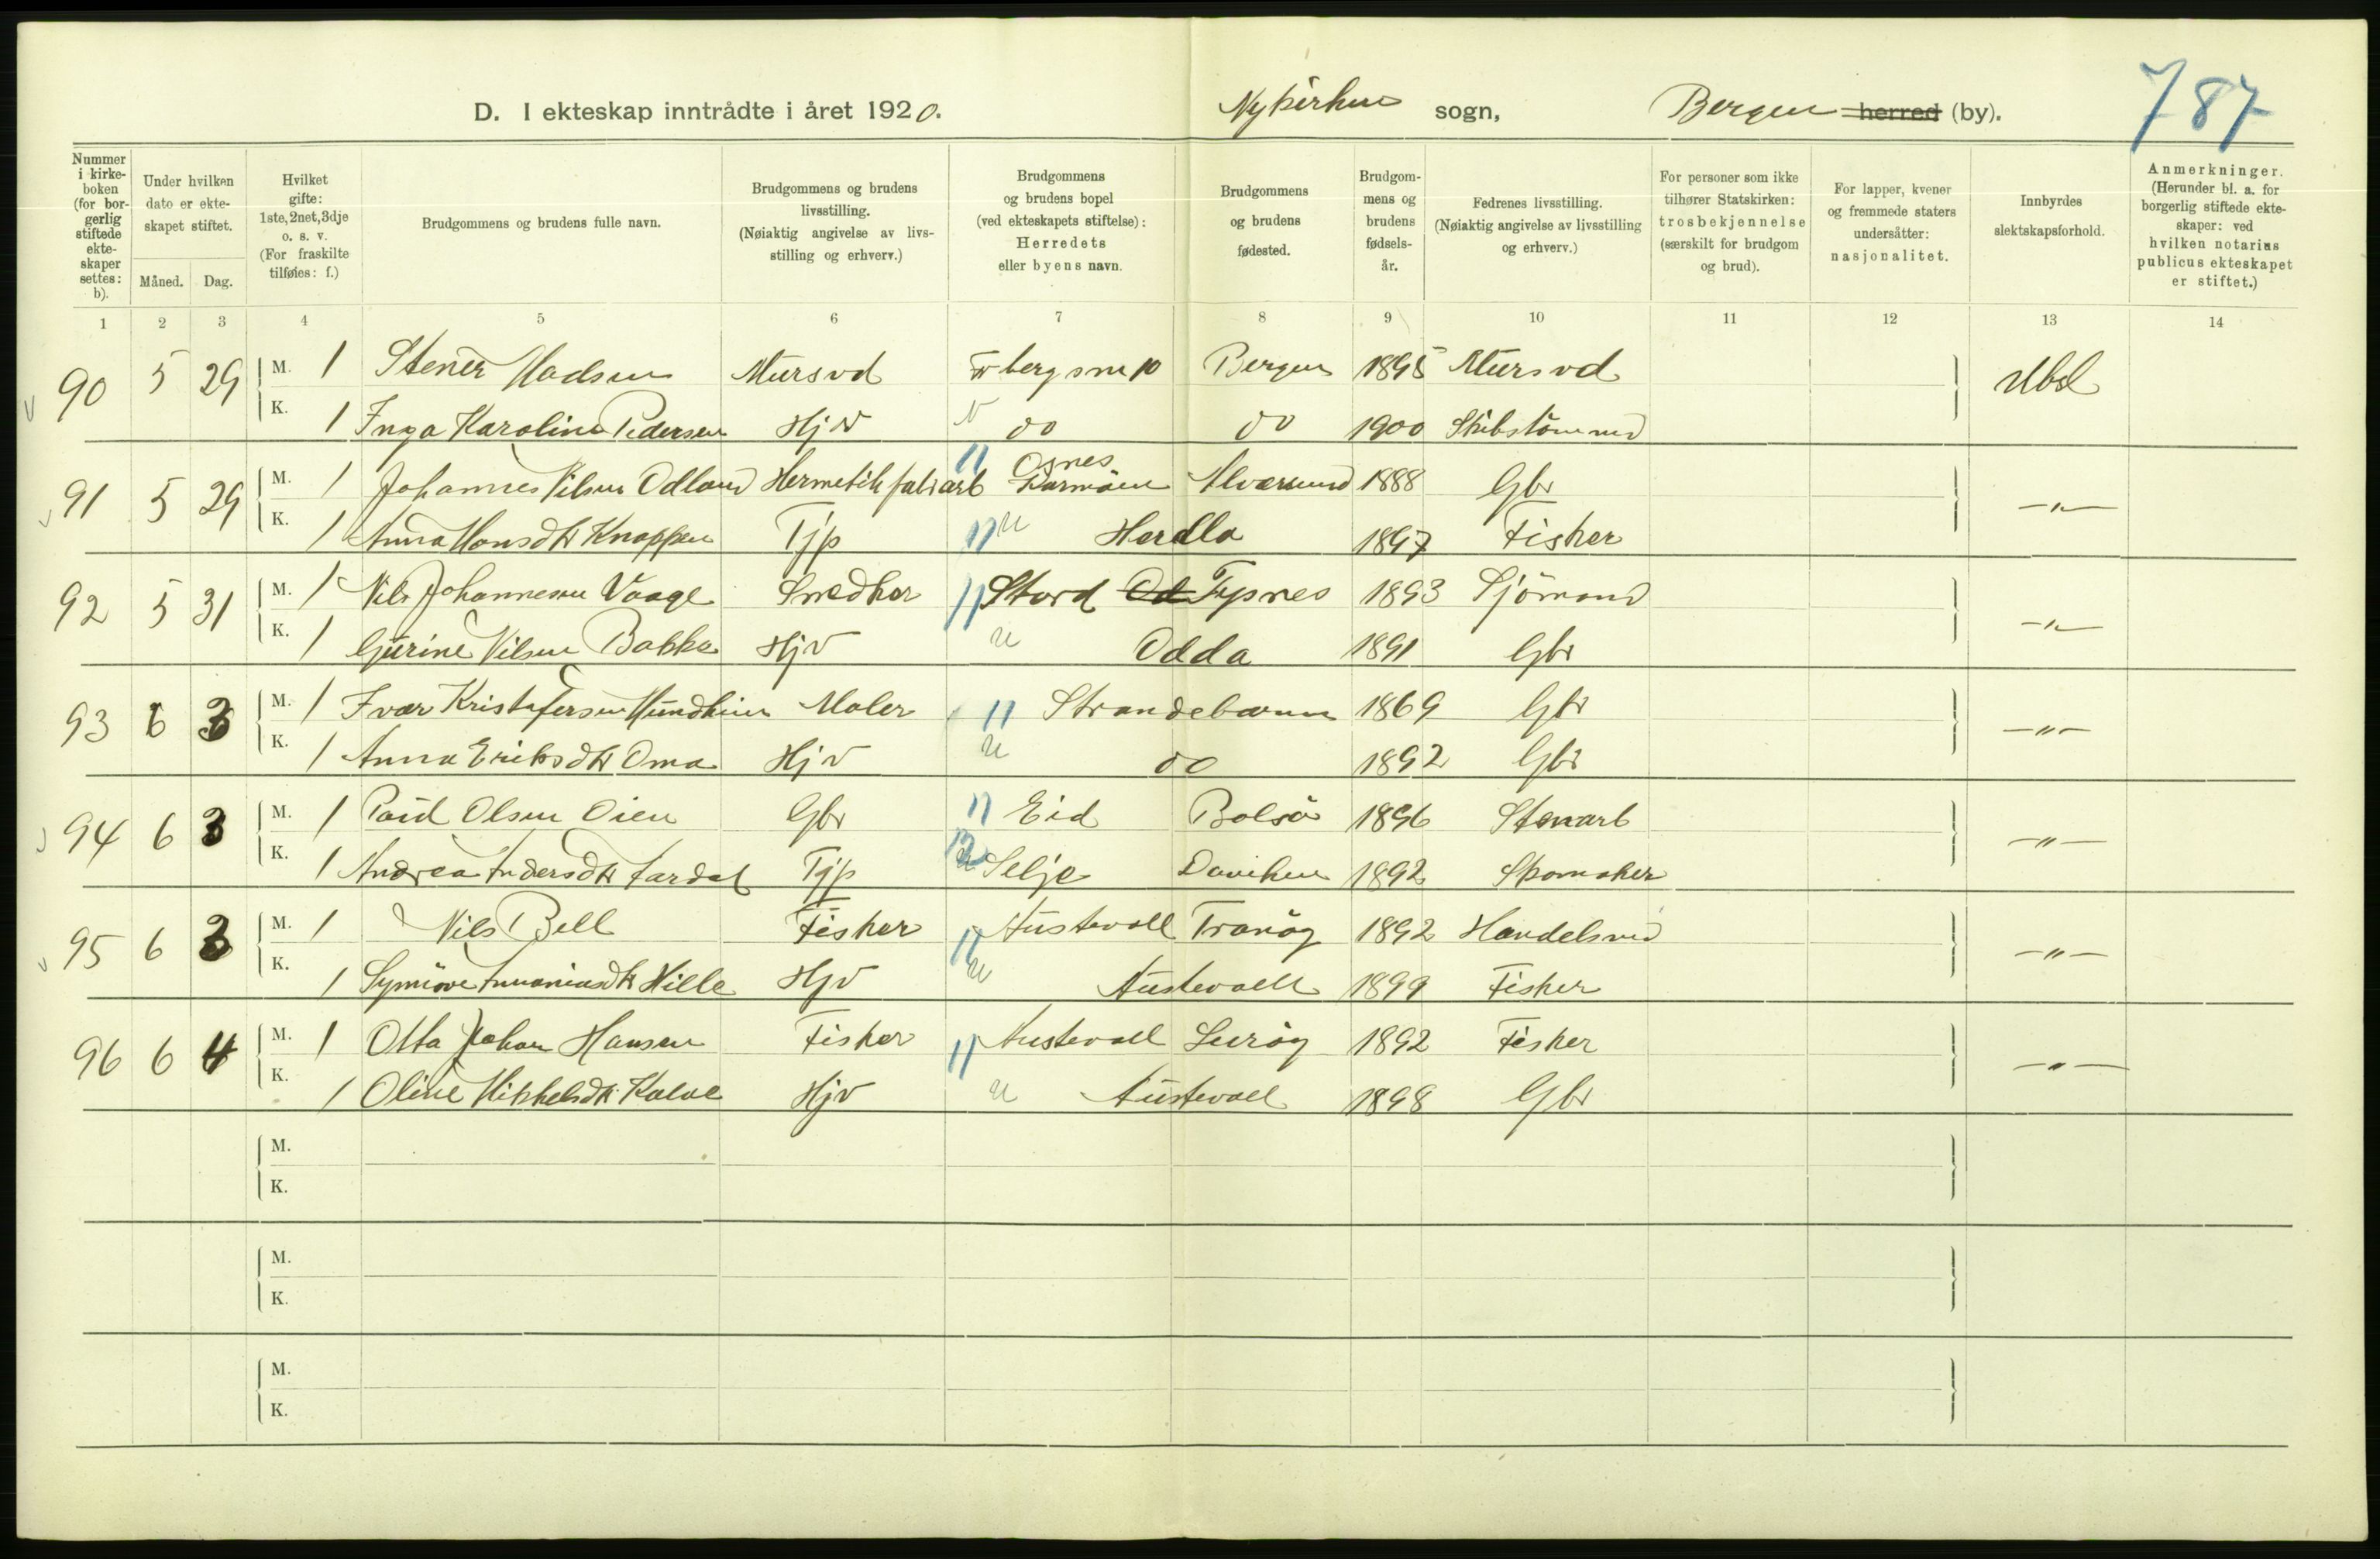 787
D. I ekteskap inntrådte i året 1920. Nykirken sogn, Bergen herred (by).
Nummer i kirkeboken (for borgerlig stiftede ekteskaper settes: b).
Under hvilken dato er ekteskapet stiftet.
Måned. Dag.
Hvilket gifte: 1ste, 2net, 3dje o. s. v. (For fraskilte tilføies: f.)
Brudgommens og brudens fulle navn.
Brudgommens og brudens livsstilling. (Nøiaktig angivelse av livsstilling og erhverv.)
Brudgommens og brudens bopel (ved ekteskapets stiftelse): Herredets eller byens navn.
Brudgommens og brudens fødested.
Brudgommens og brudens fødselsår.
Fedrenes livsstilling. (Nøiaktig angivelse av livsstilling og erhverv.)
For personer som ikke tilhører Statskirken: trosbekjennelse (særskilt for brudgom og brud).
For lapper, kvener og fremmede staters undersåtter: nasjonalitet.
Innbyrdes slektskapsforhold.
Anmerkninger. (Herunder bl. a. for borgerlig stiftede ekteskaper: ved hvilken notarius publicus ekteskapet er stiftet.)
1 2 3 4 5 6 7 8 9 10 11 12 13 14
90 5 29 M. 1 Stener Madsen Mursvd Bergen 1895 Mursvd Ubsl
K. 1 Inga Karoline Pedersen Hjv do do 1900 Skibstømmd
91 5 29 M. 1 Johannes Nilsen Odland Hermetikfabrarb 11 Osnes Karmöen Alversund 1888 Gbr -"-
K. 1 Anna Hansdtr Knappen Tjp 11 u Herdla 1897 Fisker
92 5 31 M. 1 Nils Johannesen Vaage Snedker 11 Stord Od Tysnes 1893 Sjömand -"-
K. 1 Gurine Nilsen Bakke Hjv u Odda 1891 Gbr
93 6 3 M. 1 Ivar Kristofersen Maler 11 Strandebarm 1869 Gbr -"-
K. 1 Anna Eriksdtr Oma Hjv u do 1892 Gbr
94 6 3 M. 1 Paul Olsen Oien Gbr 11 Eid Bolsö 1896 Stenarb -"-
K. 1 Andrea Andersdtr Tjp 12 Selje Daviken 1892 Skomaker
95 6 3 M. 1 Nils Bell Fisker 11 Austevoll Tranöy 1892 Handelsmd -"-
K. 1 Synnöve Hille Hjv u Austevoll 1899 Fisker
96 6 4 M. 1 Otto Johan Hansen Fisker 11 Austevoll Luröy 1892 Fisker -"-
K. 1 Oline Mikkelsdtr Kalve Hjv u Austevoll 1898 Gbr
M.
K.
M.
K.
M.
K.